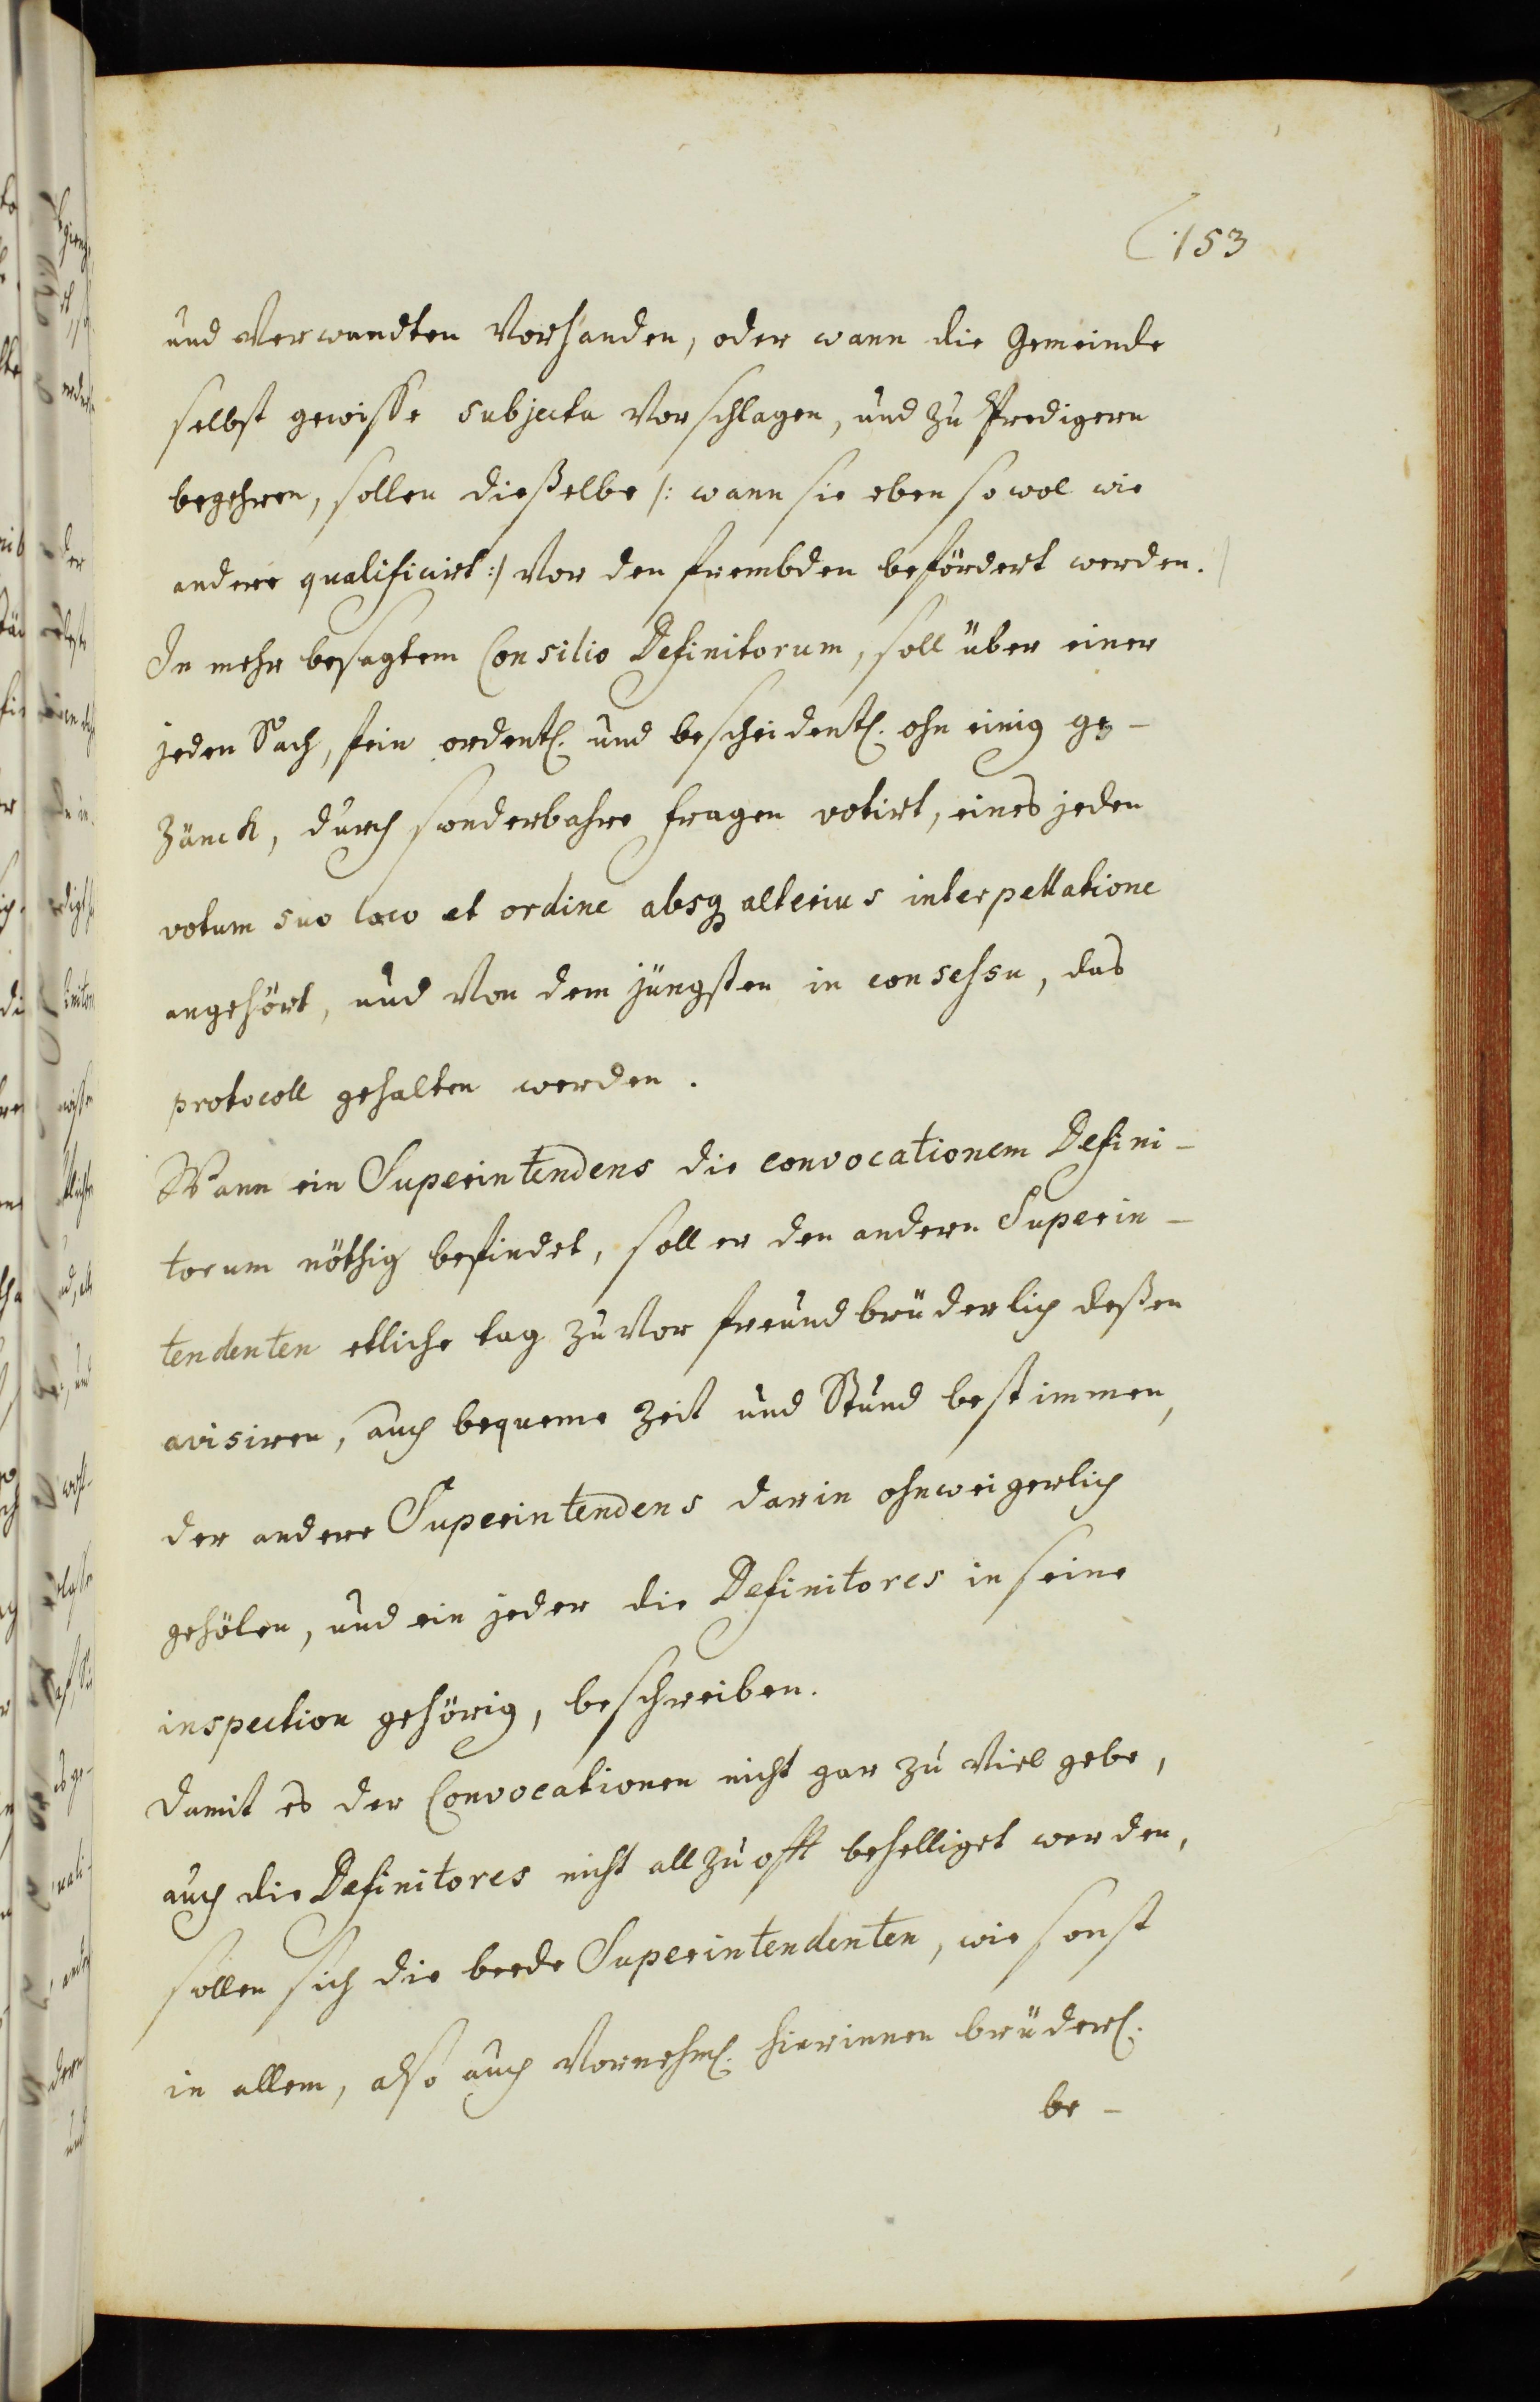 153
und Verwandten Vorhanden, oder wann die Gemeinde
selbst gewisse subjecta Vorschlagen, und zu Predigern
begehren, sollen dießelbe /: wann sie eben so wol wie
andere qualificirt :/ Vor den frembden befördert werden.
In mehr besagtem Consilio Definitorum, soll über einer
jeden Sach, fein ordentl. und bescheidentl. ohn einig ge-
zänck, durch sonderbahre fragen votirt, eines jeden
votum suo loco et ordine absq alterius interpellatione
angehört, und Von dem jüngsten in consessu, das
protocoll gehalten werden.
Wann ein Superintendens die convocationem Defini-
torum nöthig befindet, soll er den andern Superin-
tendenten etliche tag zuvor freundbrüderlich deßen
avisiren, auch bequeme Zeit und Stund bestimmen,
der andere Superintendens darin ohnweigerlich
gehölen, und ein jeder die Definitores in seine
inspection gehörig, beschreiben.
Damit es der Convocationen nicht gar zu Viel gebe,
auch die Definitores nicht allzu offt behelliget werden,
sollen sich die beede Superintendenten, wie sonst
in allem, also auch Vornehml. hierinnen brüderl.
be-